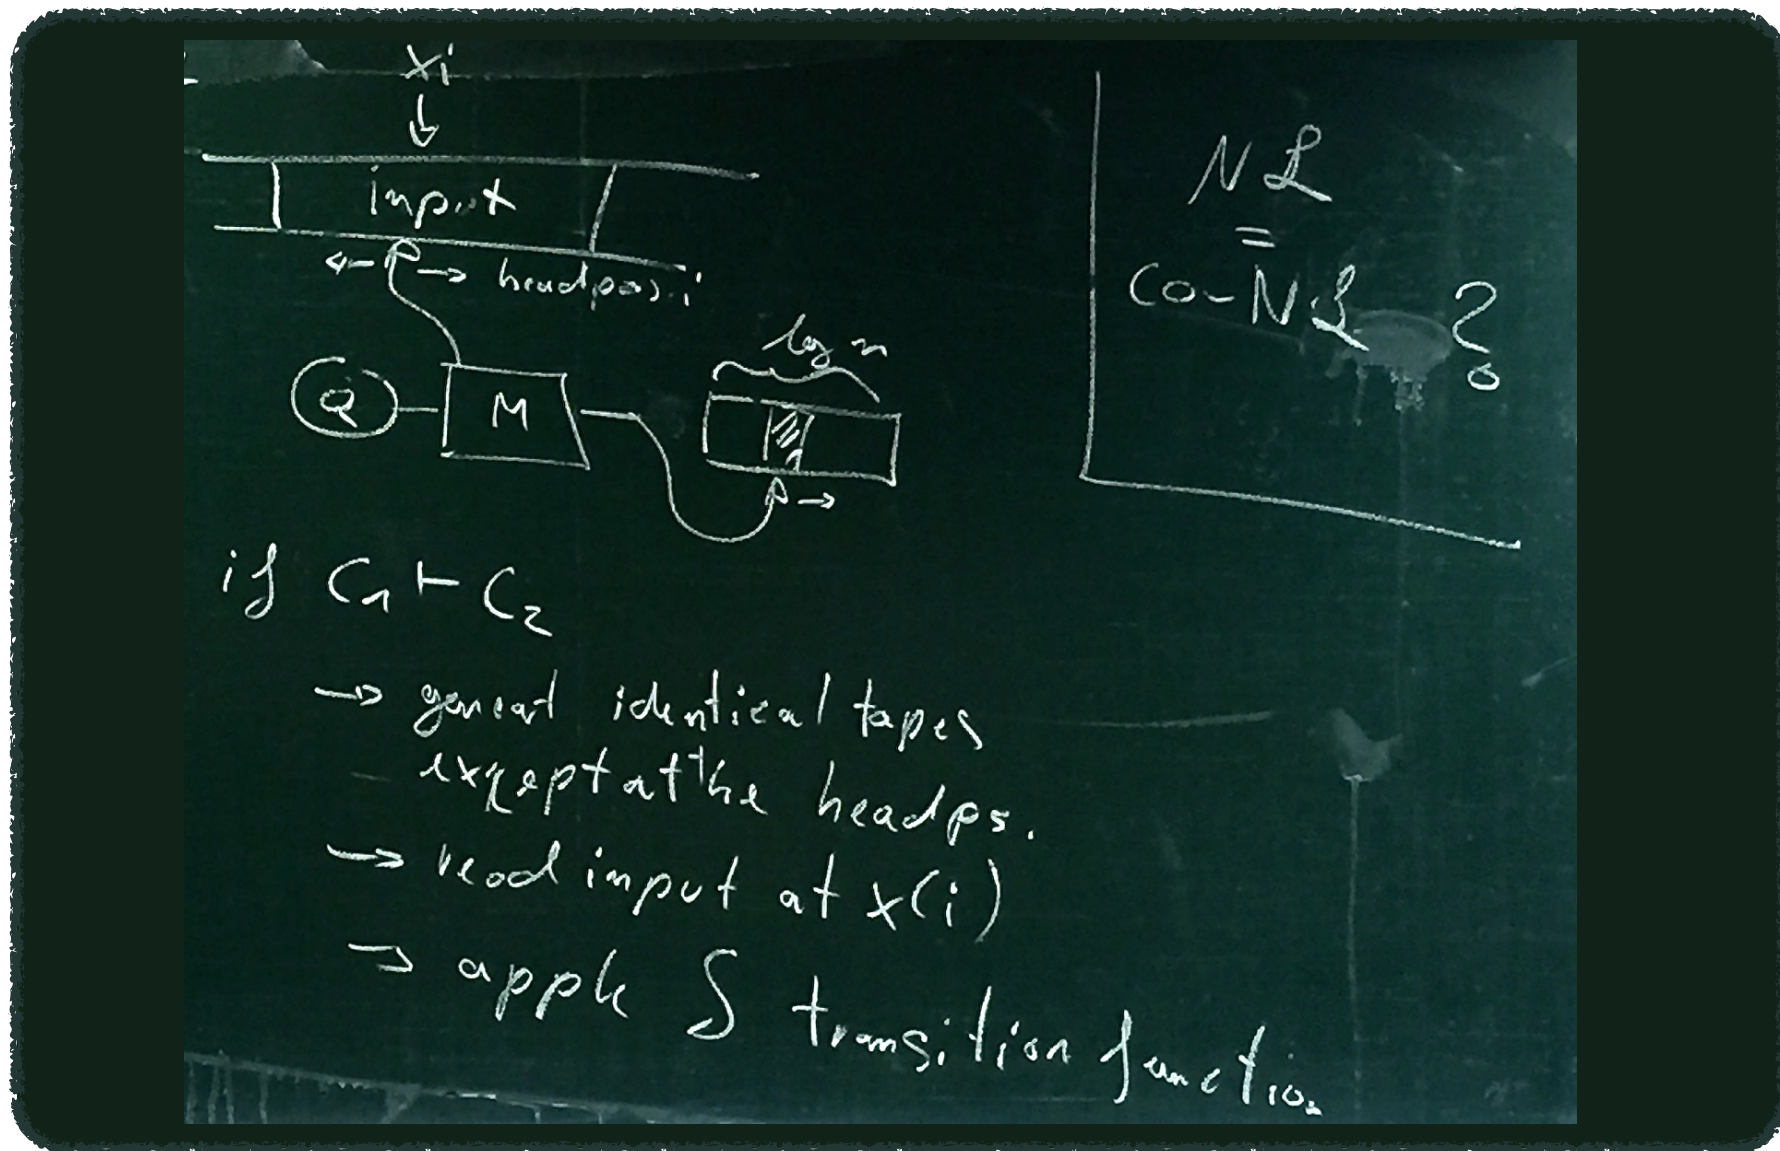 xi
input
headpos. i
log n
Q
M
NL
=
co-NL ?
if C1 ⊢ C2
→ identical tapes
except at the headps.
→ read input at x(i)
→ δ transition function